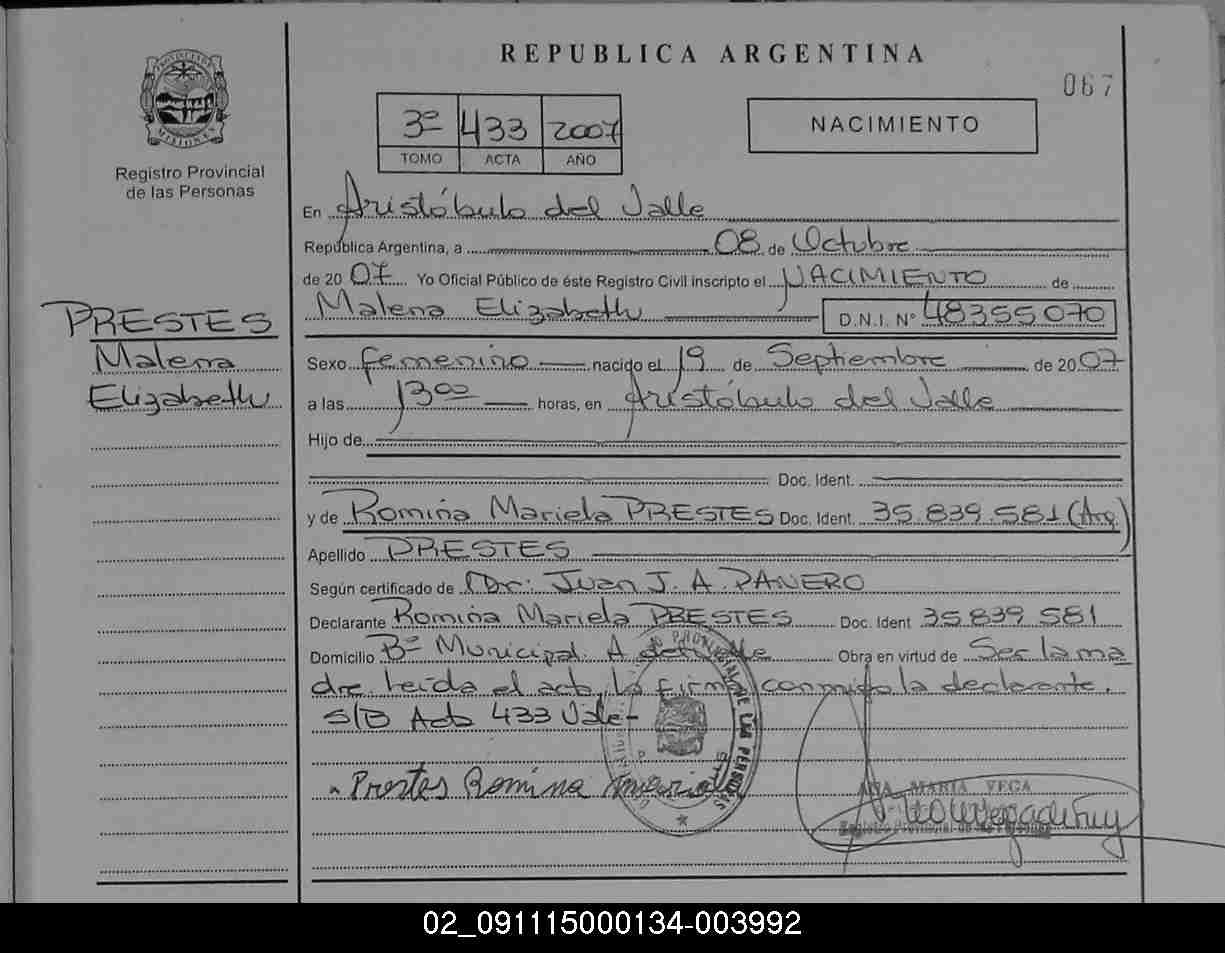 REPUBLICA ARGENTINA
067
PROVINCIA DE
MISIONES
Registro Provincial
de las Personas
3º 433 2007
TOMO ACTA AÑO
NACIMIENTO
En Aristóbulo del Valle
República Argentina, a 08 de Octubre
de 20 07. Yo Oficial Público de éste Registro Civil inscripto el NACIMIENTO de
Malena Elizabeth D.N.I. Nº 48355070
PRESTES
Malena
Elizabeth
Sexo femenino nacido el 19 de Septiembre de 20 07
a las 13 00 horas, en Aristóbulo del Valle
Hijo de
Doc. Ident.
y de Romina Mariela PRESTES Doc. Ident. 35.839.581 (Arg.)
Apellido PRESTES
Según certificado de Dr: Juan J. A. PANERO
Declarante Romina Mariela PRESTES Doc. Ident 35 839 581
Domicilio Bº Municipal A del Valle Obra en virtud de Ser la ma
dre. Leída el acta, la firma conmigo la declarante.
S/B Acta 433 Vale-
Prestes Romina Mariela
ANA MARIA VEGA
Registro Provincial de las Personas
02_091115000134-003992